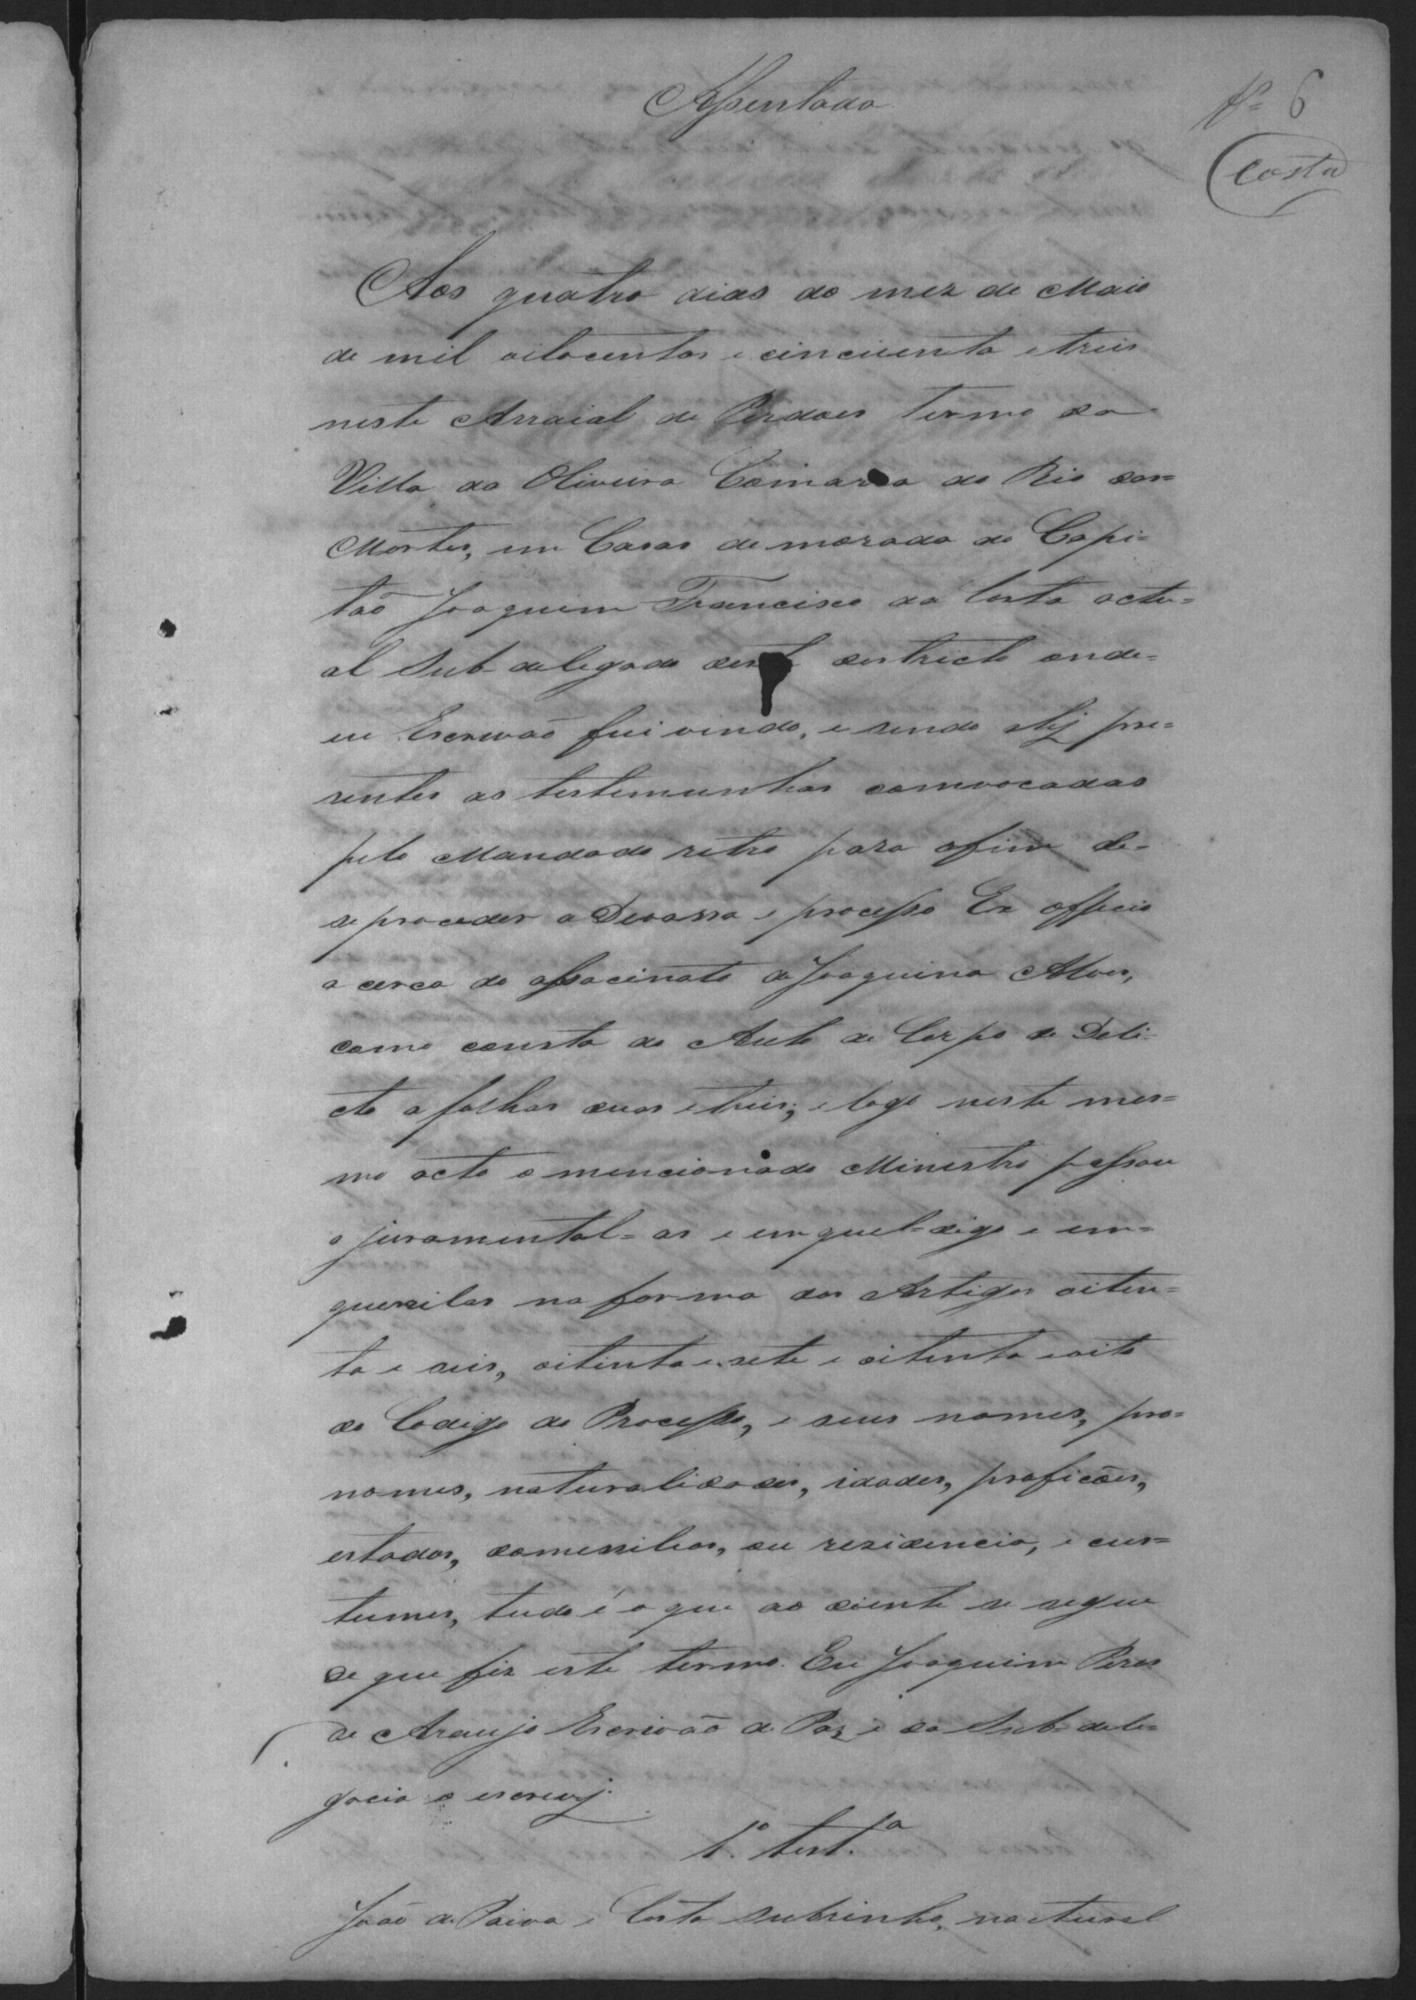 Assentada
fs 6
Costa
Aos quatro dias do mez de Maio
de mil oitocentos e cincuenta e treis
neste Arraial de Perdoes termo da
Villa da Oliveira Comarca do Rio das=
Mortes, em Casas de morada do Capi=
tão Joaquim Francisco da Costa actu=
al Sub-delegado deste destricto onde=
eu Escrevão fui vindo, e sendo ahj pre=
zentes as testemunhas comvocadas
pelo Mandado retro para o fim de=
se proceder a Devassa e processo Ex officio
a cerca do assacinato de Joaquina Alves,
como consta do Auto de Corpo de Deli=
cto a folhas duas e treis; e logo neste mes=
mo acto o mencionado Menistro passou
a juramental=as e emquel=digo e em=
querilas na forma dos Artigos oiten=
ta e seis, oitenta e sete e oitenta e oito
do Codigo do Processo, e seus nomes, pro=
nomes, naturalidades, idades, proficões,
estados, domessilios, ou rezidencia, e cus=
tumes, tudo é o que ao diente se segue
de que fiz este termo. Eu Joaquim Pires
de Araujo Escrivão de Paz e da Sub-dele=
gacia o escrevj.
1.ª test.ª
João de Paiva e Costa Subrinho, natural